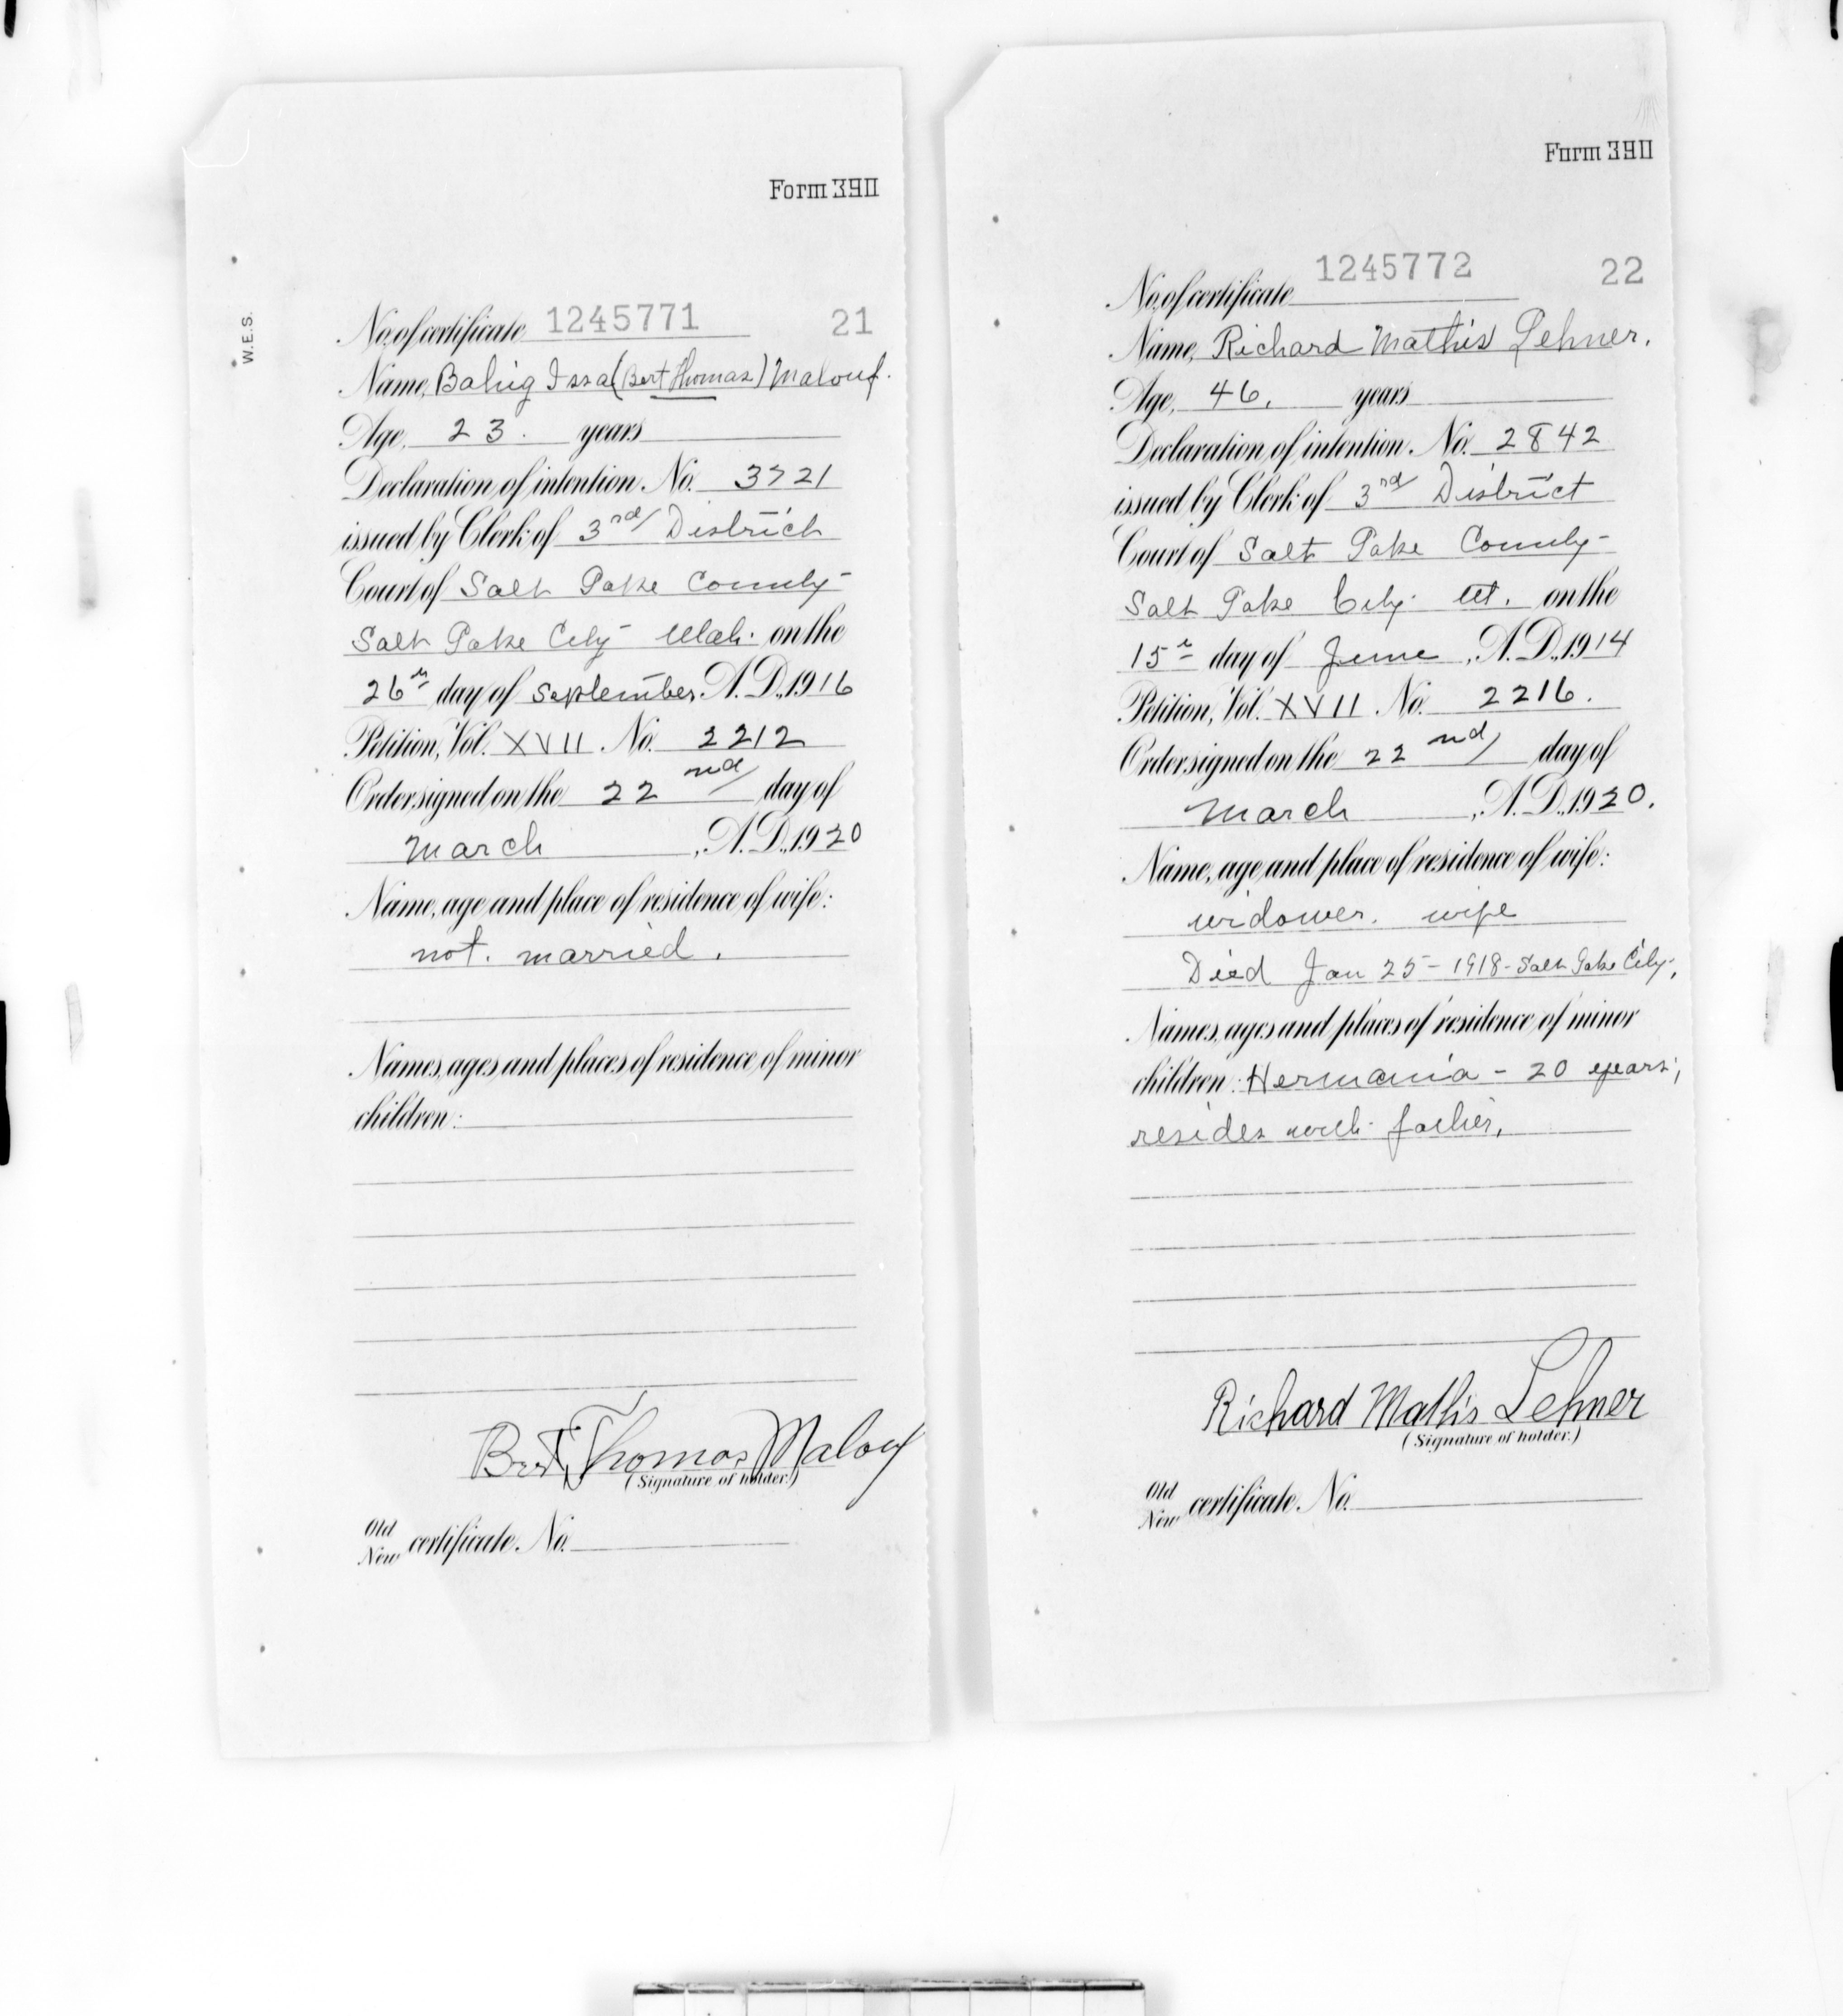 W.E.S.
Form 390
No. of certificate 1245771 21
Name, Bahig Issa (Bert Thomas) Malouf.
Age, 23. years
Declaration of intention No. 3721
issued by Clerk of 3rd District
Court of Salt Lake County
Salt Lake City Utah. on the
26th day of September, A.D., 1916
Petition, Vol. XVII No. 2212
Order signed on the 22nd day of
March, A.D., 1920
Name, age and place of residence of wife:
not. married.
Names, ages and places of residence of minor
children:
Bert Thomas Malouf
(Signature of holder.)
Old
New certificate No.
Form 390
No. of certificate 1245772 22
Name, Richard Mathis Lehner.
Age, 46. years
Declaration of intention No. 2842
issued by Clerk of 3rd District
Court of Salt Lake County-
Salt Lake City Ut. on the
15th day of June, A.D., 1914
Petition, Vol. XVII No. 2216.
Order signed on the 22nd day of
March, A.D., 1920.
Name, age and place of residence of wife:
widower. wife
Died Jan 25 - 1918 - Salt Lake City.
Names, ages and places of residence of minor
children: Hermania - 20 years;
resides with father.
Richard Mathis Lehner
(Signature of holder.)
Old
New certificate No.